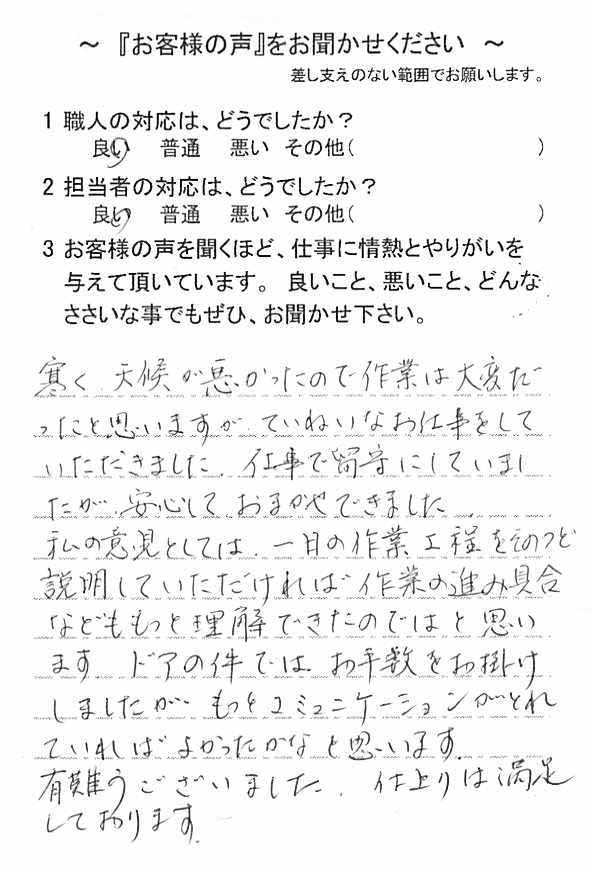 ～ 『お客様の声』をお聞かせください ～
差し支えのない範囲でお願いします。
1 職人の対応は、どうでしたか？
良い 普通 悪い その他( )
2 担当者の対応は、どうでしたか？
良い 普通 悪い その他( )
3 お客様の声を聞くほど、仕事に情熱とやりがいを
与えて頂いています。 良いこと、悪いこと、どんな
ささいな事でもぜひ、お聞かせ下さい。
寒く、天候が悪かったので作業は大変だ
ったと思いますが、ていねいなお仕事をして
いただきました。仕事で留守にしていまし
たが、安心しておまかせできました。
私の意見としては、一日の作業工程をそのつど
説明していただければ作業の進み具合
などももっと理解できたのではと思い
ます。ドアの件では、お手数をお掛け
しましたが、もっとコミュニケーションがとれ
ていればよかったかなと思います。
有難うございました。仕上りは満足
しております。